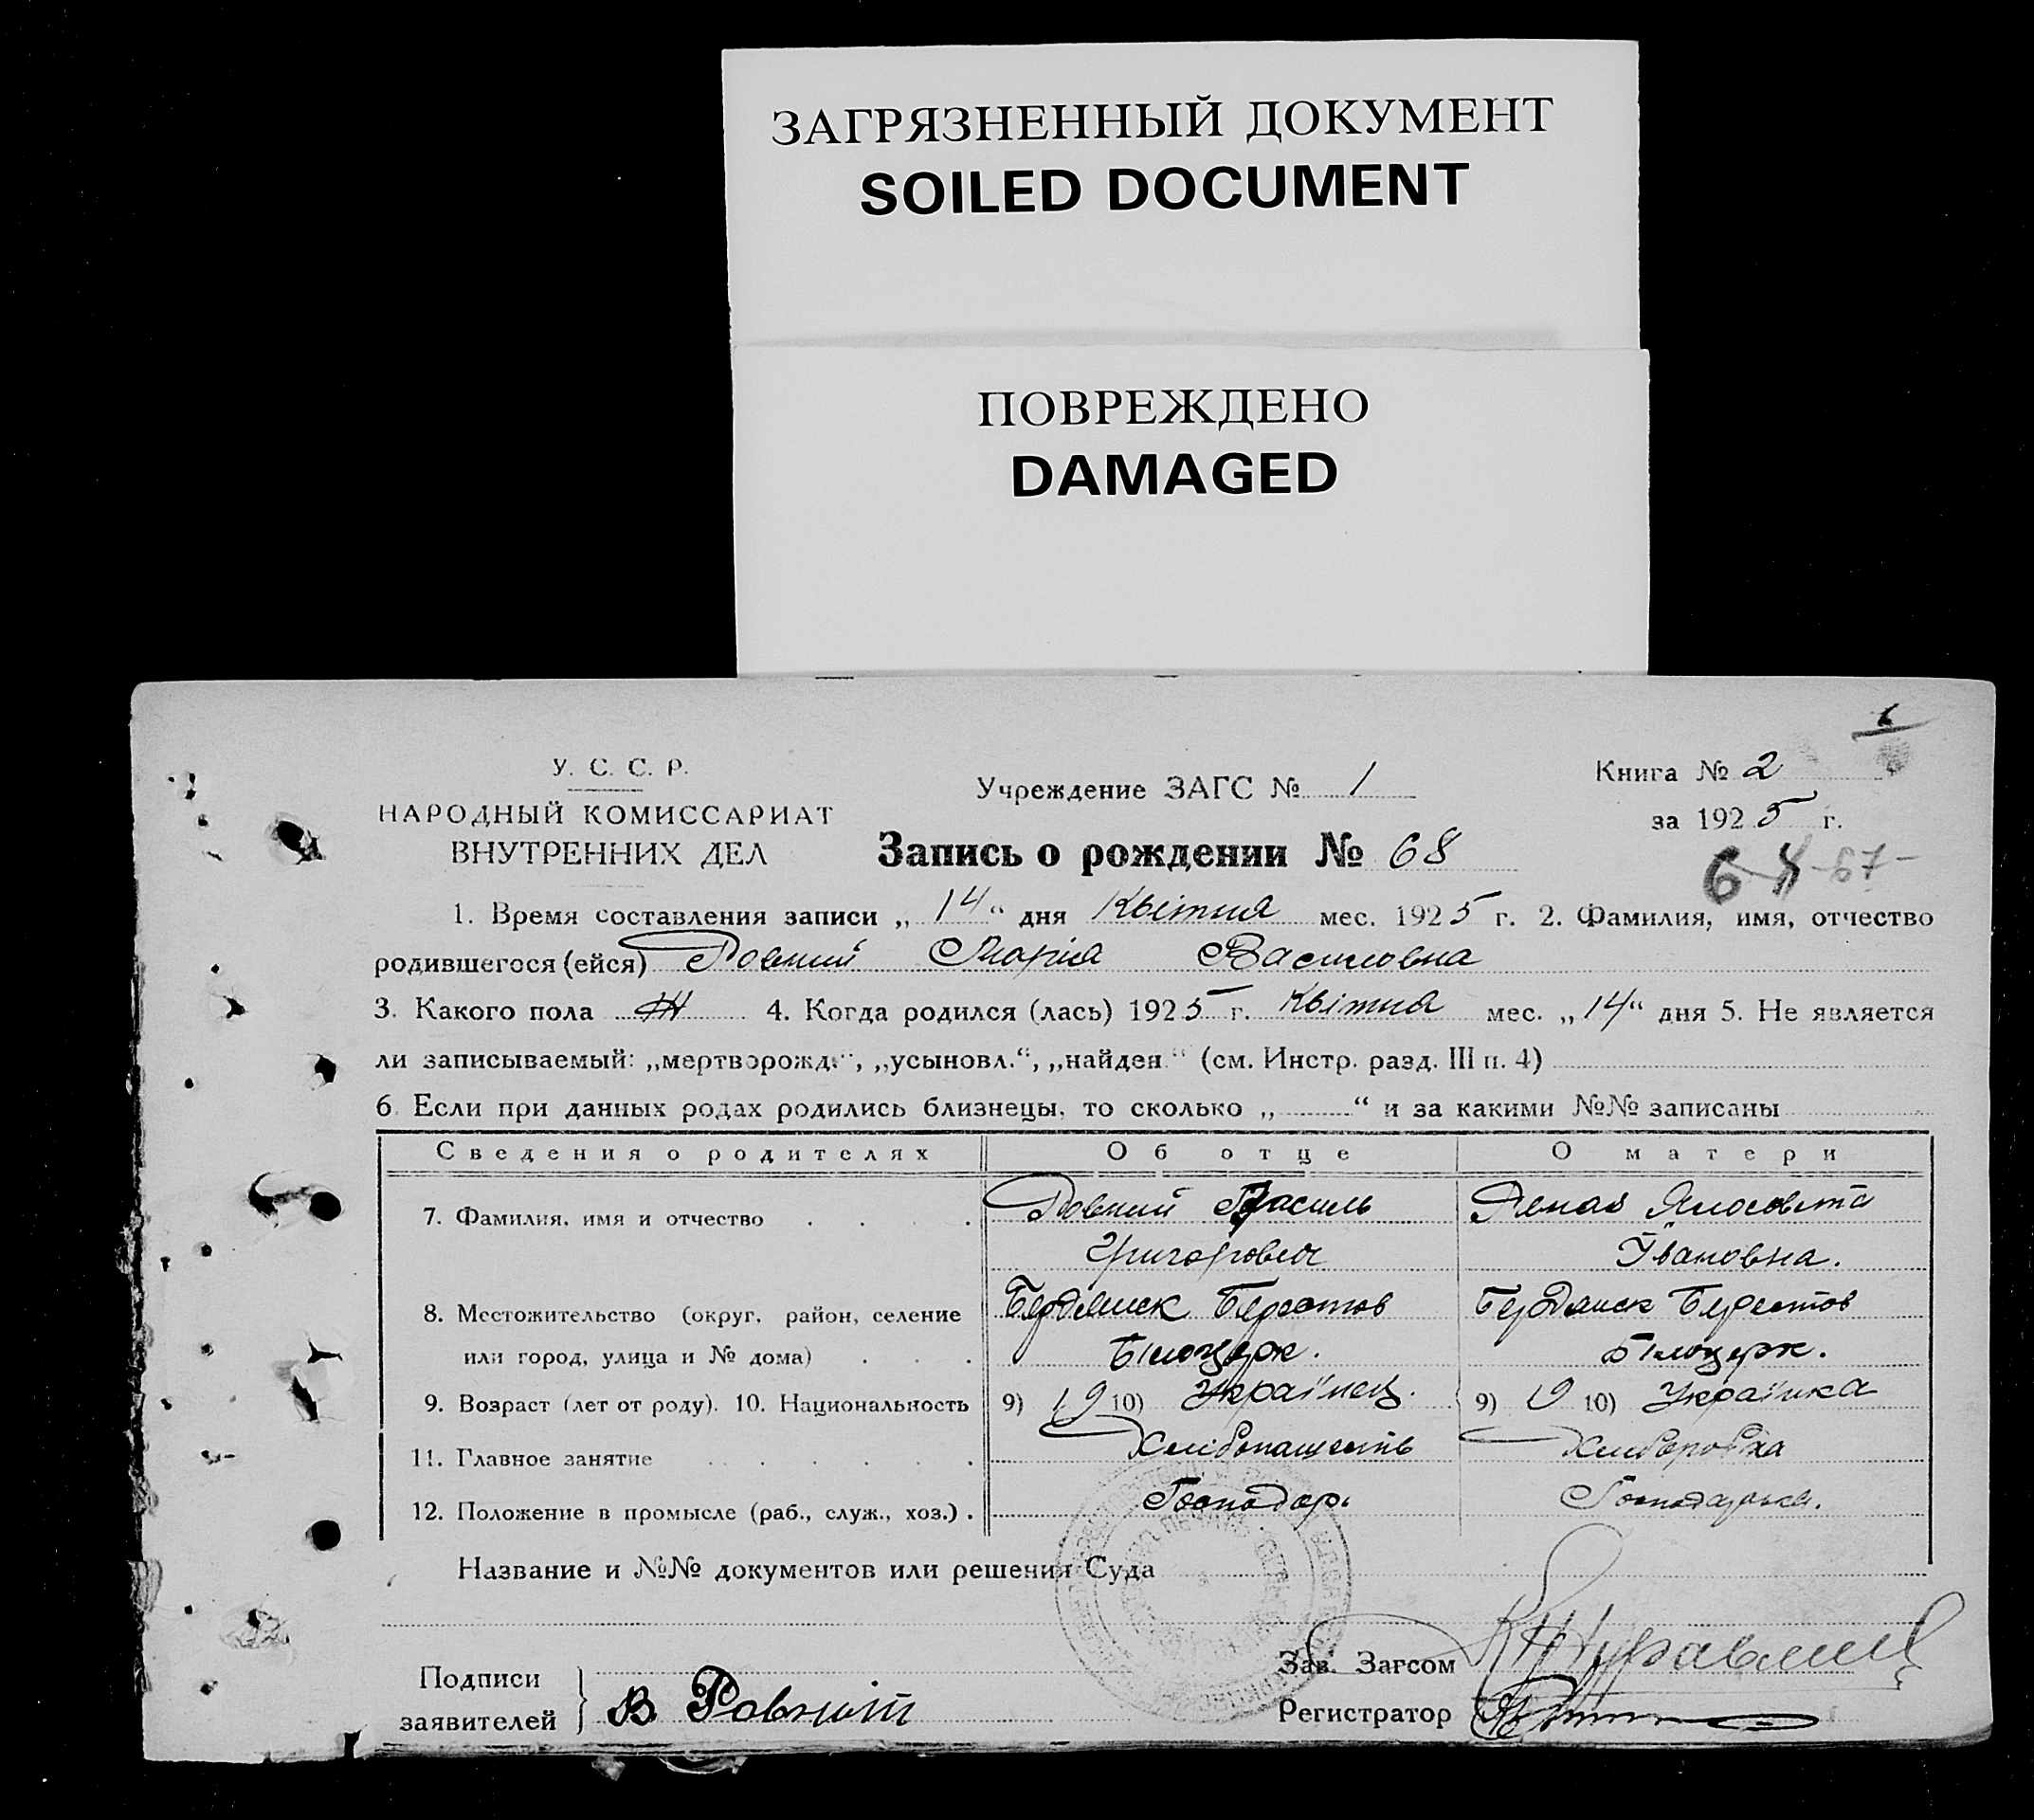 ЗАГРЯЗНЕННЫЙ ДОКУМЕНТ
SOILED DOCUMENT
ПОВРЕЖДЕНО
DAMAGED
У. С. С. Р.
НАРОДНЫЙ КОМИССАРИАТ
ВНУТРЕННИХ ДЕЛ
Учреждение ЗАГС № 1
Книга № 2
за 1925 г.
Запись о рождении № 68
1. Время составления записи „14“ дня Квітня мес. 1925 г. 2. Фамилия, имя, отчество
родившегося (ейся) Ровний Марія Василовна
3. Какого пола Ж 4. Когда родился (лась) 1925 г. Квітня мес. „14“ дня 5. Не является
ли записываемый: „мертворожд.“, „усыновл.“, „найден“ (см. Инстр. разд. III п. 4)
6. Если при данных родах родились близнецы, то сколько „ “ и за какими №№ записаны
Сведения о родителях Об отце О матери
7. Фамилия, имя и отчество Ровний Василь
Григорович Івановна.
8. Местожительство (округ, район, селение Бердянск Берестов Бердянск Берестов
или город, улица и № дома) Білоцерк. Білоцерк.
9. Возраст (лет от роду). 10. Национальность 9) 19 10) Українец. 9) 19 10) Українка
11. Главное занятие
12. Положение в промысле (раб., служ., хоз.) Господар. Господарька.
Название и №№ документов или решения Суда
Подписи
заявителей
В. Ровний
Зав. Загсом
Регистратор